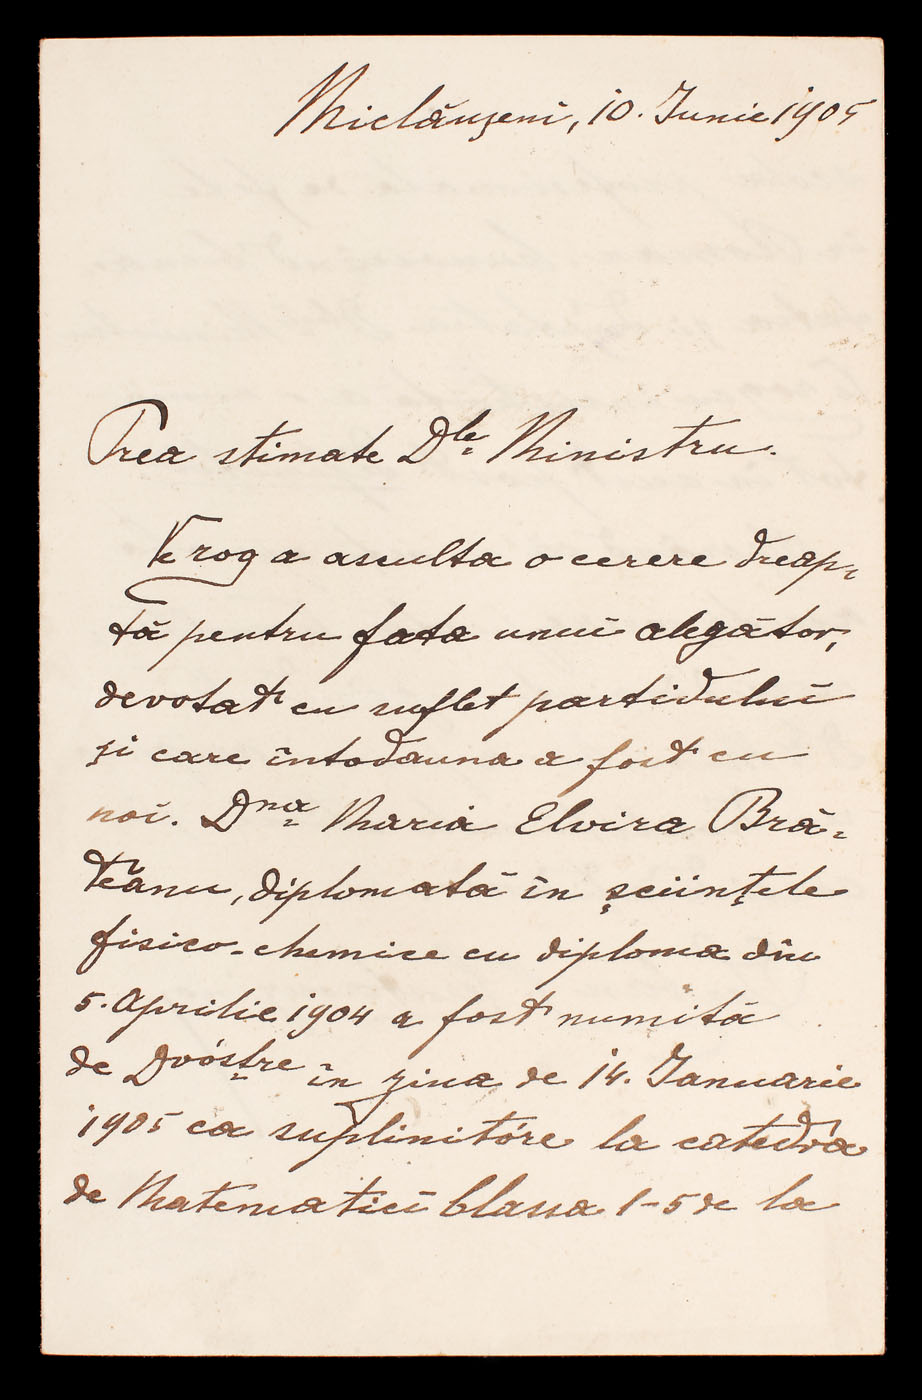 Miclăușenĭ, 10. Iunie 1905
Prea stimate Dle Ministru.
Ve rog a asculta o cerere dreap-
tă pentru fata unuĭ alegător,
devotat cu suflet partiduluĭ
și care întodauna a fost cu
noĭ. Dna Maria Elvira Bră-
teanu, diplomată în sciințele
fisico-chemice cu diploma din
5. Aprilie 1904 a fost numită
de Dvóstre în ziua de 14. Ianuarie
1905 ca suplinitóre la catedra
de Matematicĭ Classa 1-5 de la